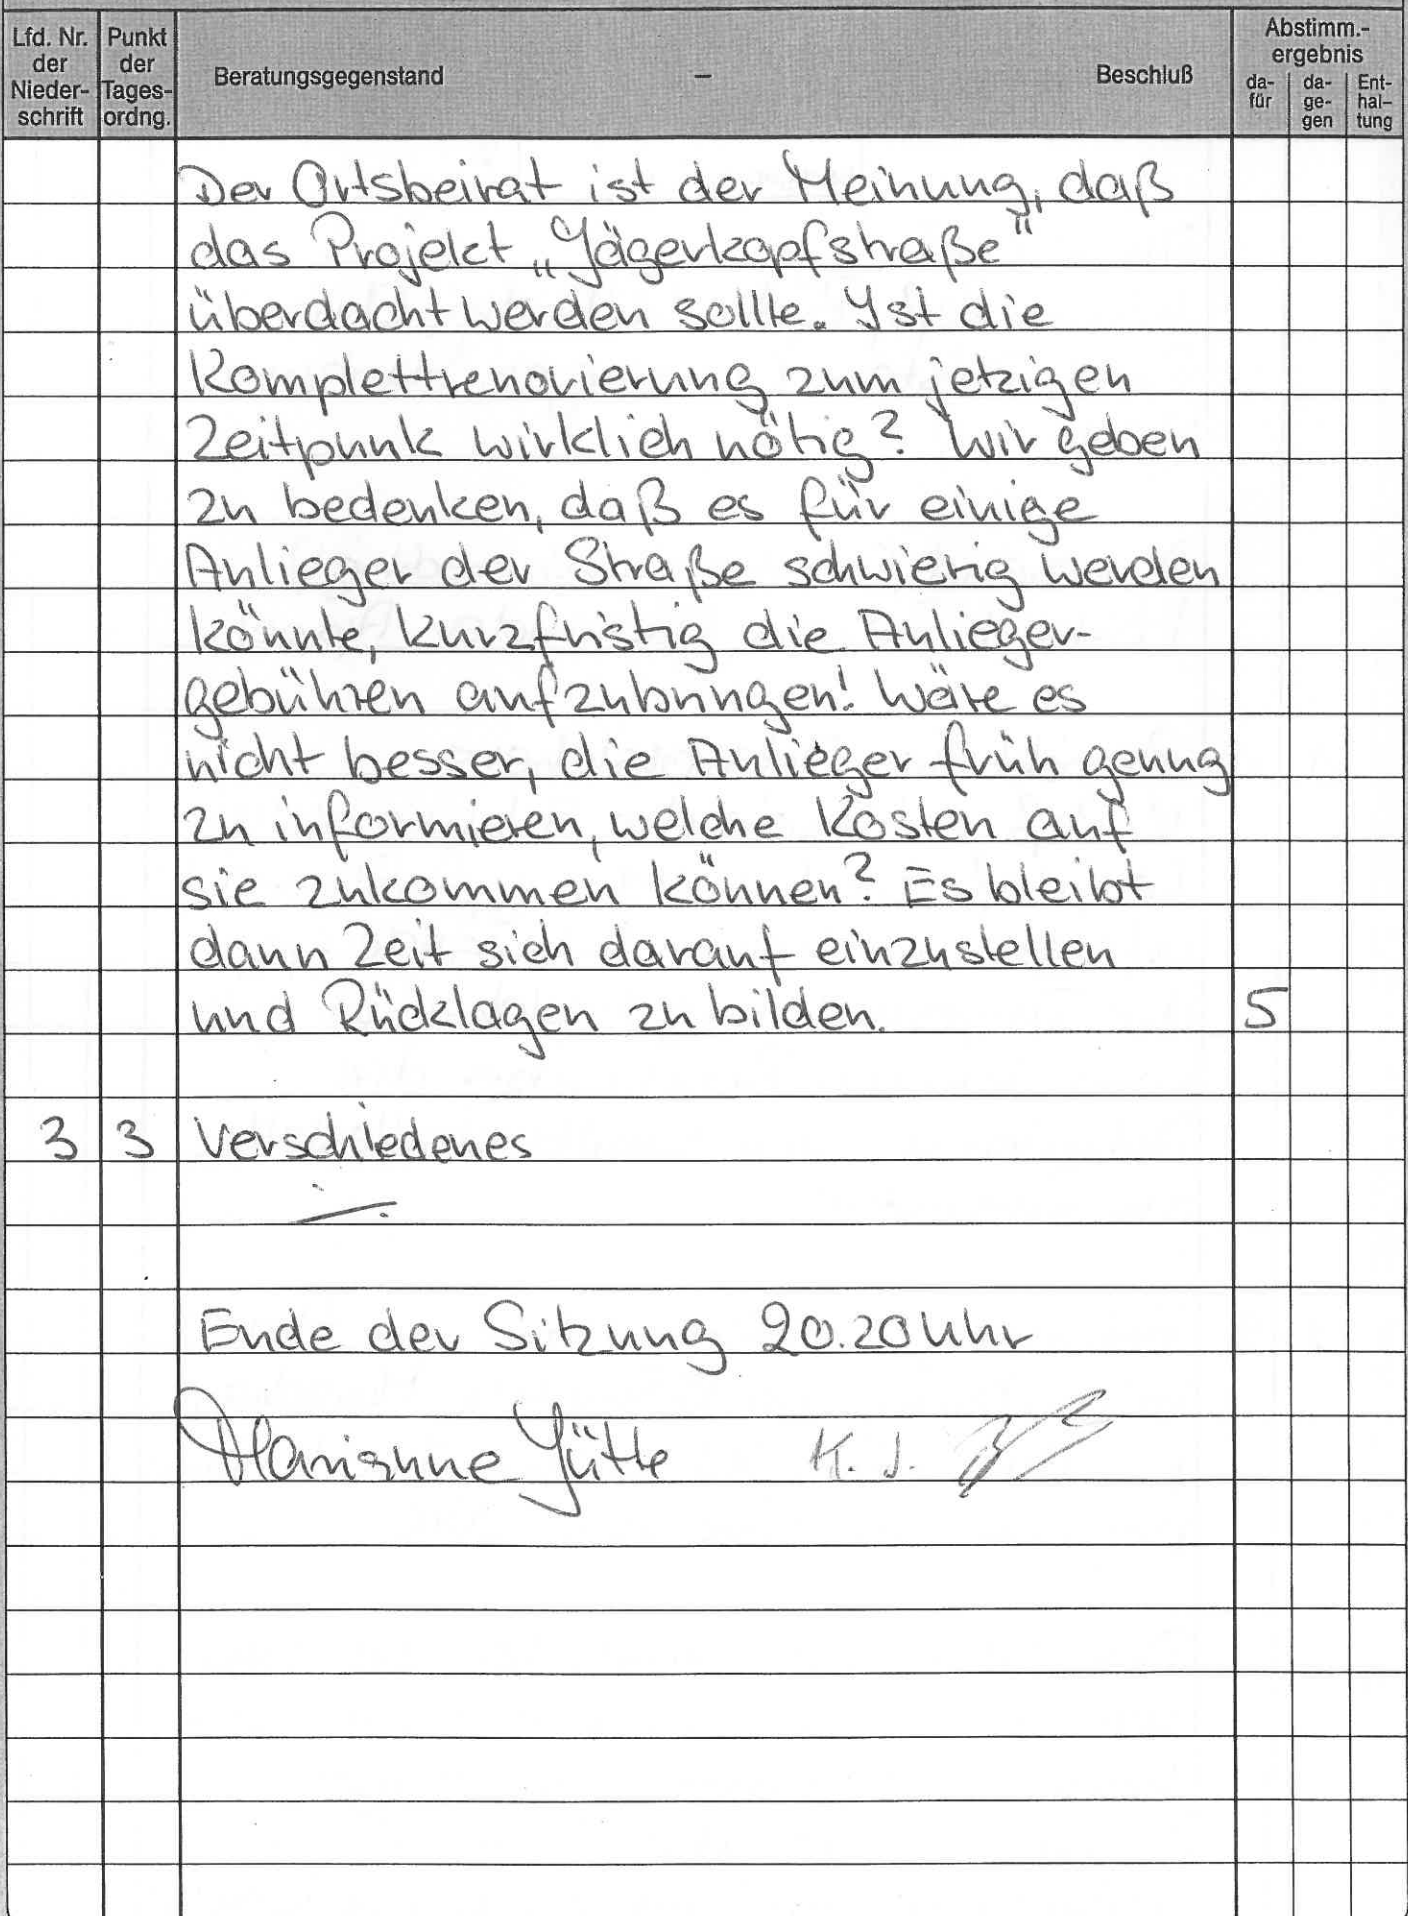 Lfd. Nr. der Nieder- schrift
Punkt der Tages- ordng.
Beratungsgegenstand – Beschluß
Abstimm.- ergebnis
da- für
da- ge- gen
Ent- hal- tung
Der Ortsbeirat ist der Meinung, daß
das Projekt „Jägerkopfstraße"
überdacht werden sollte. Ist die
Komplettrenovierung zum jetzigen
Zeitpunk wirklich nötig? Wir geben
zu bedenken, daß es für einige
Anlieger der Straße schwierig werden
könnte, kurzfristig die Anlieger-
gebühren aufzubringen! Wäre es
nicht besser, die Anlieger früh genug
zu informieren, welche Kosten auf
sie zukommen können? Es bleibt
dann Zeit sich darauf einzustellen
und Rücklagen zu bilden. 5
3 3 Verschiedenes
Ende der Sitzung 20.20 Uhr
Marianne Jütte K. J.